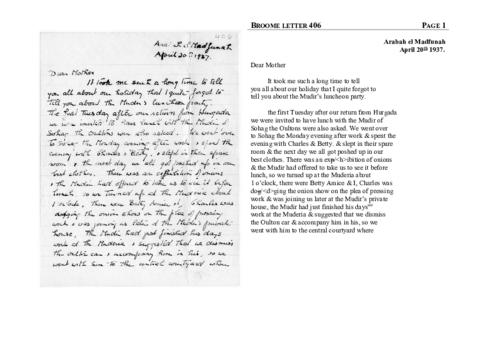 406
Arabah el Madfunah
April 20th 1937.
Dear Mother
It took me such a long time to tell
you all about our holiday that I quite forgot to
tell you about the Mudir's luncheon party.
the first Tuesday after our return from Hurgada
we were invited to have lunch with the Mudir of
Sohag the Oultons were also asked. We went over
to Sohag the Monday evening after work & spent the
evening with Charles & Betty, & slept in their spare
room & the next day we all got poshed up in our
best clothes. There was an exhibition of onions
& the Mudir had offered to take us to see it before
lunch, so we turned up at the Muderia about
1 o'clock, there were Betty Amice & I, Charles was
dodging the onion show on the plea of pressing
work & was joining us later at the Mudir's private
house, the Mudir had just finished his days
work at the Muderia & suggested that we dismiss
the Oulton car & accompany him in his, so we
went with him to the central courtyard where
BROOME LETTER 406 PAGE 1
Arabah el Madfunah
April 20th 1937.
Dear Mother
It took me such a long time to tell
you all about our holiday that I quite forgot to
tell you about the Mudir's luncheon party.
the first Tuesday after our return from Hurgada
we were invited to have lunch with the Mudir of
Sohag the Oultons were also asked. We went over
to Sohag the Monday evening after work & spent the
evening with Charles & Betty. & slept in their spare
room & the next day we all got poshed up in our
best clothes. There was an exp<h>ibition of onions
& the Mudir had offered to take us to see it before
lunch, so we turned up at the Muderia about
1 o'clock, there were Betty Amice & I, Charles was
dog<d>ging the onion show on the plea of pressing
work & was joining us later at the Mudir's private
house, the Mudir had just finished his days
work at the Muderia & suggested that we dismiss
the Oulton car & accompany him in his, so we
went with him to the central courtyard where